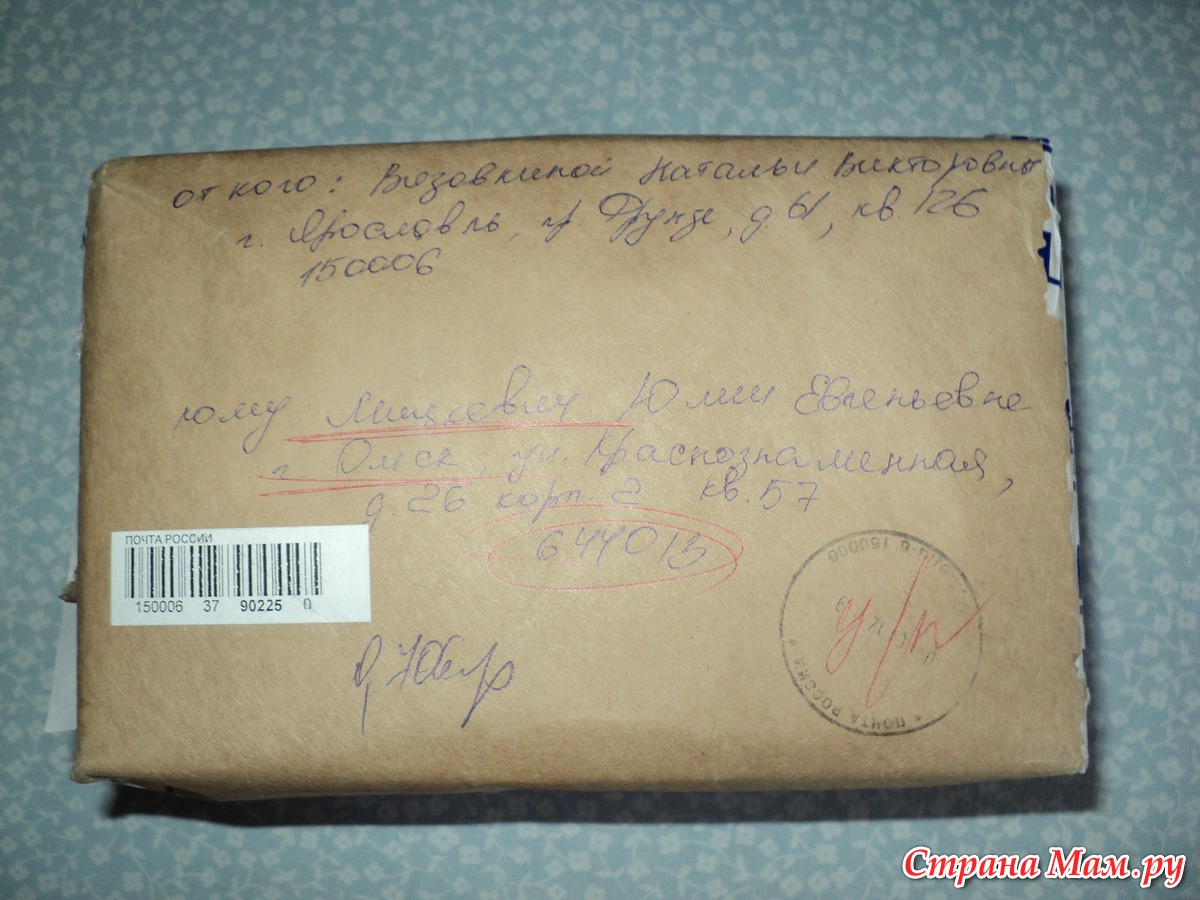 от кого: Вязовкиной Натальи Викторовны
г. Ярославль, пр. Фрунзе, д 61, кв. 126
150006
кому Мицкевич Юлии Евгеньевне
г. Омск, ул. Краснознаменная,
д. 26 корп. 2 кв. 57
644013
ПОЧТА РОССИИ
150006 37 90225 0
6 150006
у/п
ПОЧТА РОССИИ
Страна Мам.ру